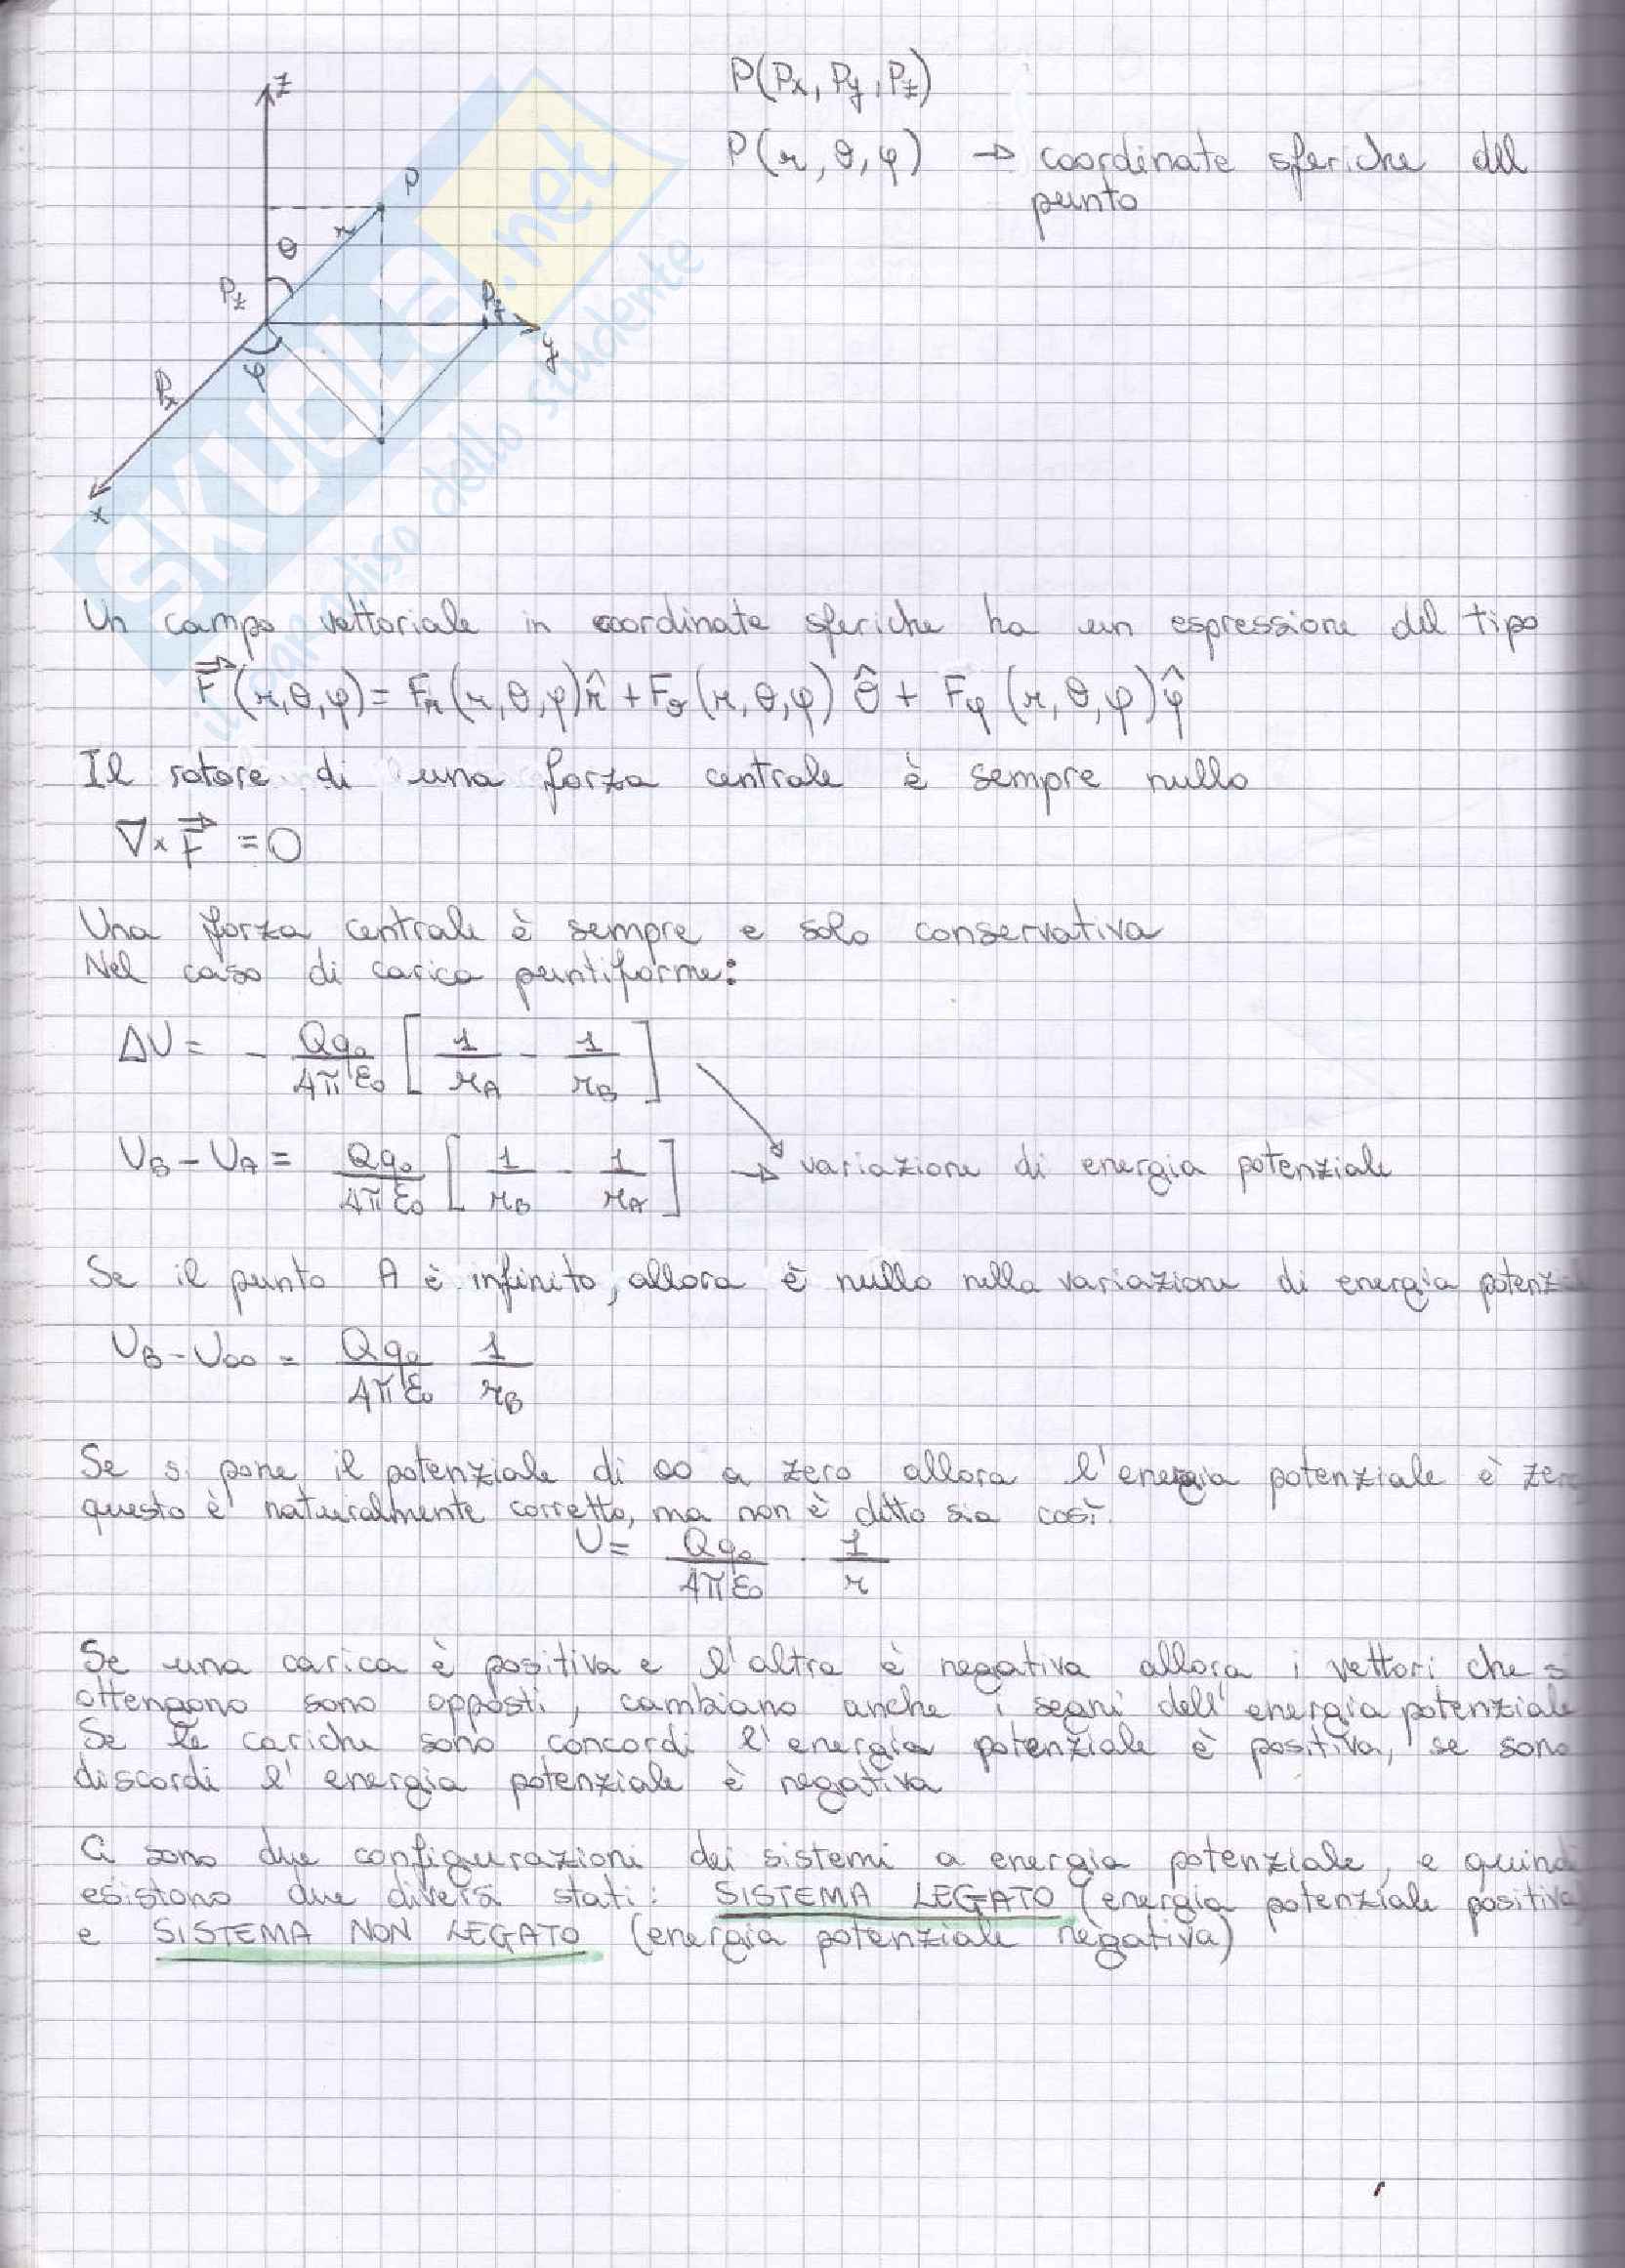 P(Px, Py, Pz)
P(r, θ, φ) → coordinate sferiche del
punto
z
P
r
θ
Pz
Py
y
φ
Px
x
SKUOLA.net
il paradiso dello studente
Un campo vettoriale in coordinate sferiche ha un espressione del tipo
F(r,θ,φ) = Fr(r,θ,φ)r̂ + Fθ(r,θ,φ) θ̂ + Fφ(r,θ,φ)φ̂
Il rotore di una forza centrale è sempre nullo
∇×F = 0
Una forza centrale è sempre e solo conservativa
Nel caso di carica puntiforme:
ΔU = - Qq₀/4πε₀ [1/rA - 1/rB]
UB - UA = Qq₀/4πε₀ [1/rB - 1/rA] → variazione di energia potenziale
Se il punto A è infinito, allora è nullo nella variazione di energia potenzi
UB - U∞ = Qq₀/4πε₀ 1/rB
Se si pone il potenziale di ∞ a zero allora l'energia potenziale è zero
questo è naturalmente corretto, ma non è detto sia così.
U = Qq₀/4πε₀ · 1/r
Se una carica è positiva e l'altra è negativa allora i vettori che si
ottengono sono opposti, cambiano anche i segni dell'energia potenziale
Se le cariche sono concordi l'energia potenziale è positiva, se sono
discordi l'energia potenziale è negativa
Ci sono due configurazioni dei sistemi a energia potenziale, e quindi
esistono due diversi stati: SISTEMA LEGATO (energia potenziale positiva
e SISTEMA NON LEGATO (energia potenziale negativa)